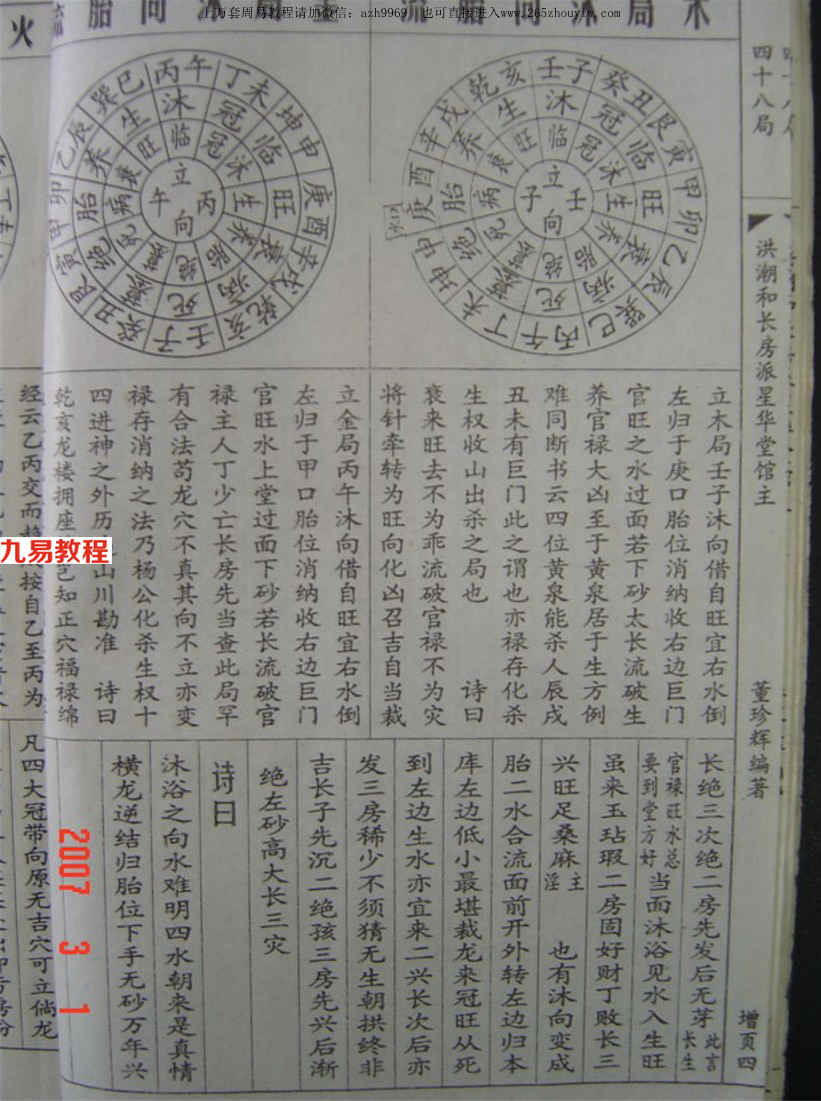 上万套周易教程请加微信：azh9969，也可直接进入www.265zhouyim.com
木局沐向胎流
向胎
火
四十八局
洪潮和长房派星华堂馆主
董珍辉编著
增页四
壬子 癸丑 艮寅 甲卯 乙辰 巽巳 丙午 丁未 坤申 庚酉 辛戌 乾亥
沐 冠 临 旺 衰 病 死 墓 绝 胎 养 生
临 冠 沐 生 养 胎 绝 墓 死 病 衰 旺
立壬向子
水口
丙午 丁未 坤申 庚酉 辛戌 乾亥 壬子 癸丑 艮寅 甲卯 乙辰 巽巳
沐 冠 临 旺 衰 病 死 墓 绝 胎 养 生
临 冠 沐 生 养 胎 绝 墓 死 病 衰 旺
立丙向午
立木局壬子沐向借自旺宜右水倒
左归于庚口胎位消纳收右边巨门
官旺之水过面若下砂太长流破生
养官禄大凶至于黄泉居于生方例
难同断书云四位黄泉能杀人辰戌
丑未有巨门此之谓也亦禄存化杀
生权收山出杀之局也 诗曰
衰来旺去不为乖流破官禄不为灾
将针牵转为旺向化凶召吉自当裁
立金局丙午沐向借自旺宜右水倒
左归于甲口胎位消纳收右边巨门
官旺水上堂过面下砂若长流破官
禄主人丁少亡长房先当查此局罕
有合法苟龙穴不真其向不立亦变
禄存消纳之法乃杨公化杀生权十
四进神之外历 山川勘准 诗曰
乾亥龙楼拥座 已知正穴福禄绵
经云乙丙交而趋 按自乙至丙为
九易教程
长绝三次绝二房先发后无芽 此言长生
官禄旺水总要到堂方好 当面沐浴见水入生旺
虽来玉玷瑕二房固好财丁败长三
兴旺足桑麻 主淫 也有沐向变成
胎二水合流面前开外转左边归本
库左边低小最堪裁龙来冠旺从死
到左边生水亦宜来二兴长次后亦
发三房稀少不须猜无生朝拱终非
吉长子先沉二绝孩三房先兴后渐
绝左砂高大长三灾
诗曰
沐浴之向水难明四水朝来是真情
横龙逆结归胎位下手无砂万年兴
凡四大冠带向原无吉穴可立倘龙
2007 3 1